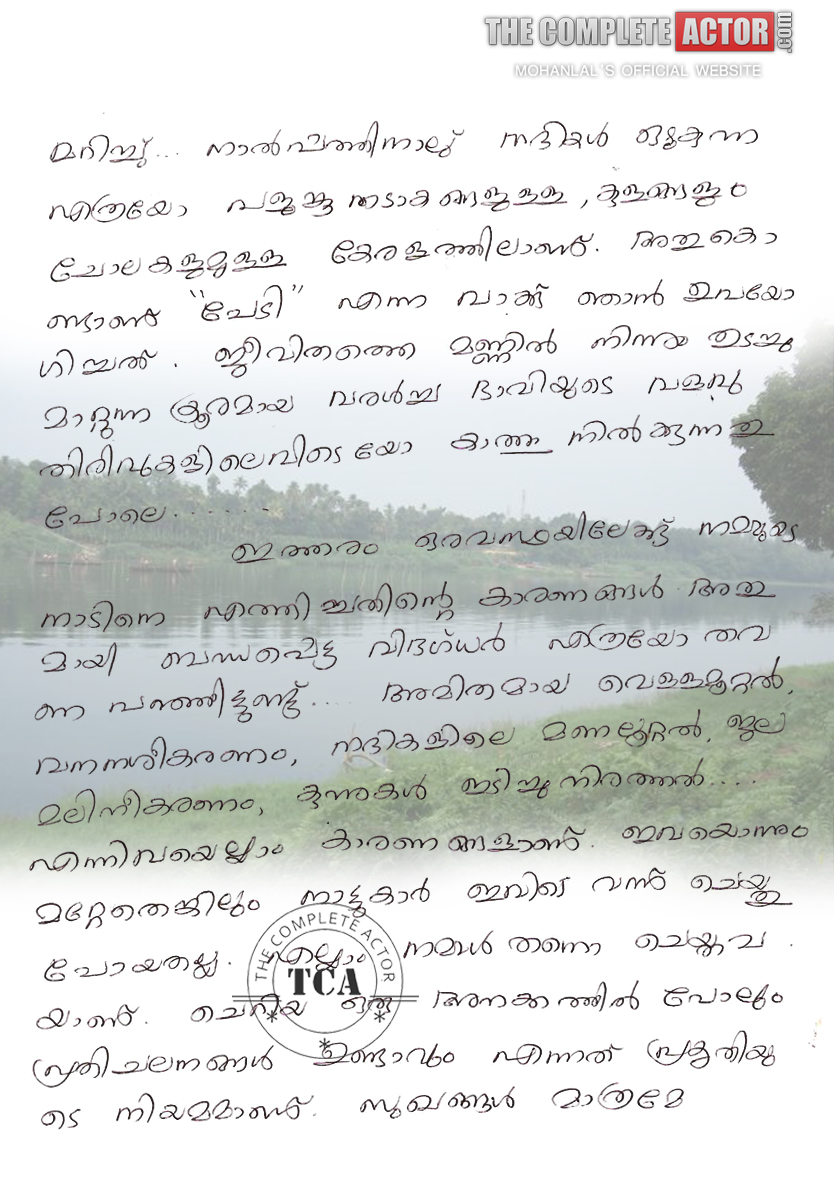 THE COMPLETE ACTOR.com
MOHANLAL'S OFFICIAL WEBSITE
മറിച്ച്... നാൽപത്തിനാലു് നദികൾ ഒഴുകുന്ന
എത്രയോ വലുതും തടാകങ്ങളുള്ള, കുളങ്ങളും
ചോലകളുമുള്ള കേരളത്തിലാണ്. അതുകൊ
ണ്ടാണ് "പേടി" എന്ന വാക്ക് ഞാൻ ഉപയോ
ഗിച്ചത്. ജീവിതത്തെ മണ്ണിൽ നിന്നും തുടച്ചു
മാറ്റുന്ന ക്രൂരമായ വരൾച്ച ഭാവിയുടെ വളവു
തിരിവുകളിലെവിടെയോ കാത്തു നിൽക്കുന്നതു
പോലെ.......
ഇത്തരം ഒരവസ്ഥയിലേക്ക് നമ്മുടെ
നാടിനെ എത്തിച്ചതിന്റെ കാരണങ്ങൾ അതു
മായി ബന്ധപ്പെട്ട വിദഗ്ധർ എത്രയോ തവ
ണ പറഞ്ഞിട്ടുണ്ട്.... അമിതമായ വെള്ളമൂറ്റൽ,
വനനശീകരണം, നദികളിലെ മണലൂറ്റൽ, ജല
മലിനീകരണം, കുന്നുകൾ ഇടിച്ചുനിരത്തൽ....
എന്നിവയെല്ലാം കാരണങ്ങളാണ്. ഇവയൊന്നും
മറ്റേതെങ്കിലും നാട്ടുകാർ ഇവിടെ വന്ന് ചെയ്തു
പോയതല്ല. എല്ലാം നമ്മൾ തന്നെ ചെയ്തവ
യാണ്. ചെറിയ ഒരു അനക്കത്തിൽ പോലും
പ്രതിചലനങ്ങൾ ഉണ്ടാവും എന്നത് പ്രകൃതിയു
ടെ നിയമമാണ്. സുഖങ്ങൾ മാത്രമേ
THE COMPLETE ACTOR
TCA